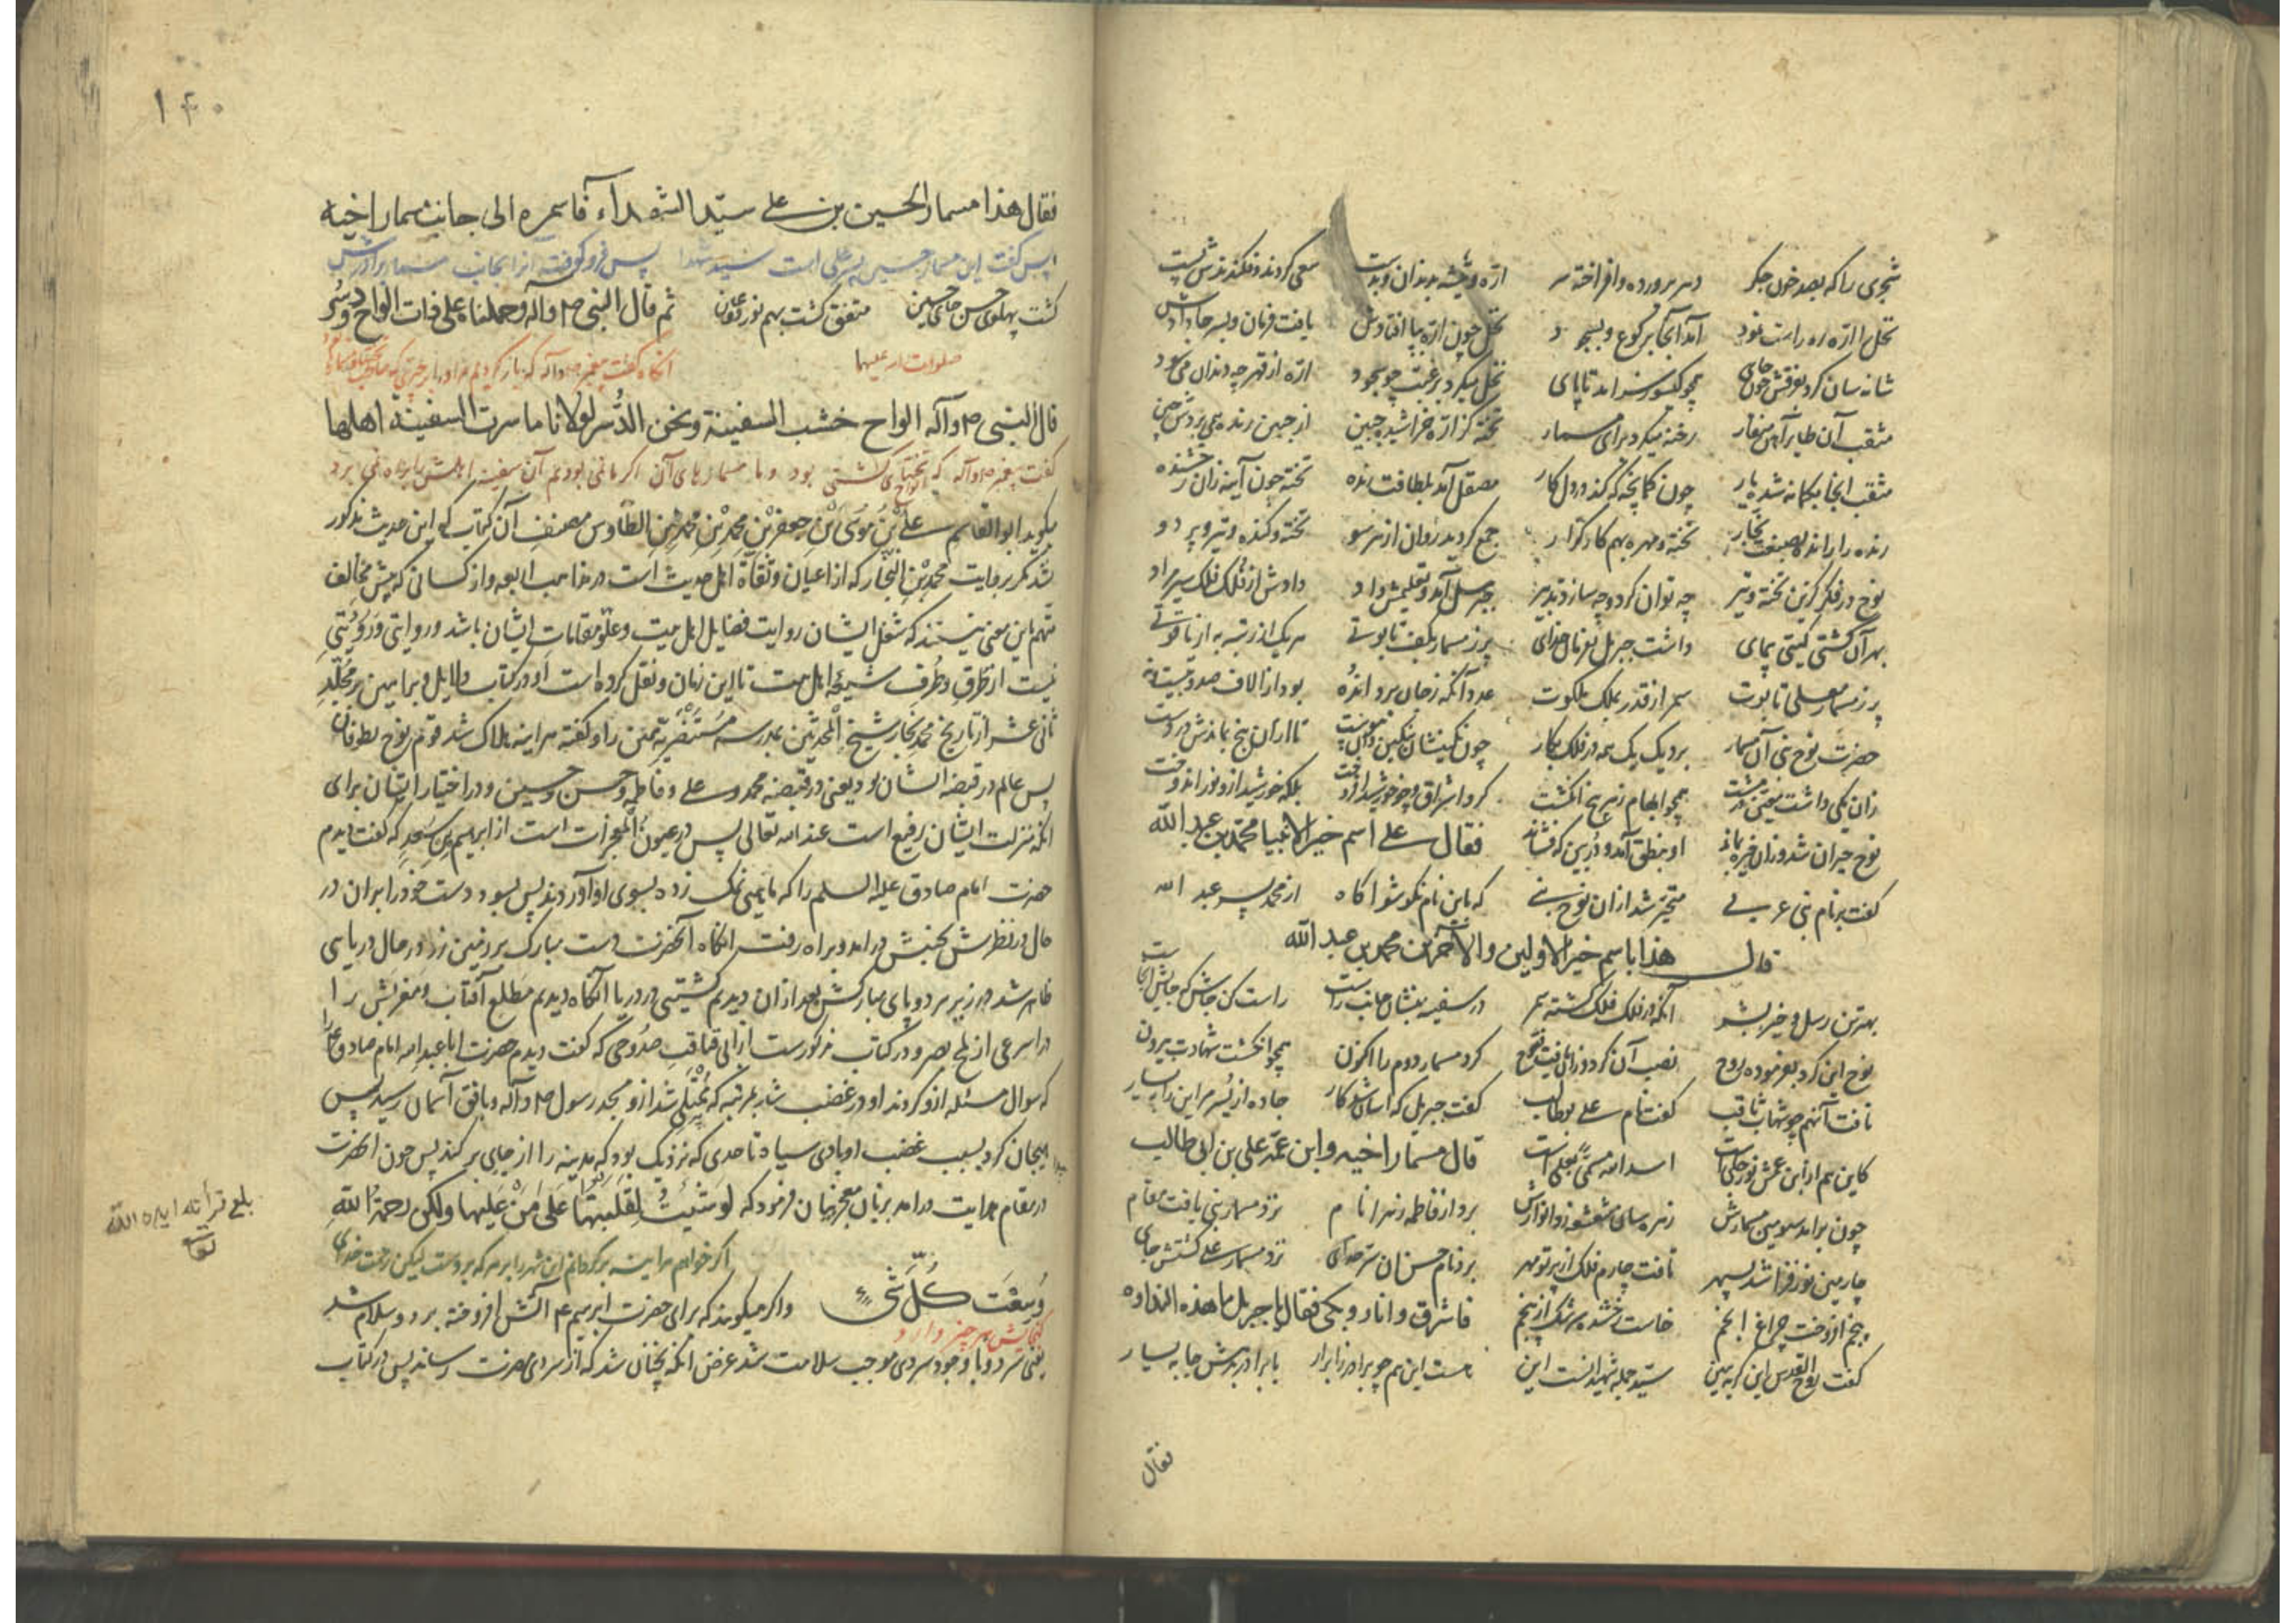 شجری را که بصد خون جگر دهر پرورده و افراخته سر ارّه و تیشه بدندان و بدست سعی کردند و فکندندش پست
نخل را ارّه ره راست نمود آمد آنجا برکوع و بسجود نخل چون ارّه بپا افتادش یافت فرمان و بسر جا دادش
شانه سان کرد بفرقش چون جای همچو کیسو سر آمد تا پای نخل میکرد برغبت چو سجود ارّه از قهر چه دندان می سود
مثقب آن طایر آهن منقار رخنه میکرد برای مسمار تخته کز ارّه خراشید جبین از جبین رنده همی بردش چین
مثقب آنجا بکمانه شده یار چون کمانچه که کند در دل کار مصقل آمد بلطافت رنده تخته چون آینه زان رخشنده
رنده را رانده بصنعت نجار تخته و مهره بهم کارگزار جمع گردید روان از هر سو تخته و کنده و تیر و پردو
نوح در فکر کزین تخته و تیر چه توان کرد و چه سازد تدبیر جبرئیل آمد و تعلیمش داد دادش از فلک فلک سیر مراد
بهر آن کشتی کیتی پیمای داشت جبریل بفرمان خدای پر ز مسمار بکف تابوتی هر یک از رتبه به از یاقوتی
پر ز مسمار معلی تابوت سمر از قدر بملک ملکوت عدد آنکه ز جان برد اندُه بود از الاف صد و بیست و نه
حضرت نوح نبی آن مسمار برد یک یک همه در فلک بکار چون نکینشان بنکین دان پیوست تا از آن پنج بماندش در دست
زان یکی داشت معین در مشت همچو ابهام ز هر پنج انکشت کرد اشراق و چو خورشید افروخت بلکه خورشید ازو نور اندوخت
نوح حیران شد و زان خیره بماند او بنطق آمد و دُر بین که فشاند فقال علی اسم خیر الانبیا محمّد بن عبد الله
کفت بر نام نبی عربی متحیّر شد از آن نوح نبی که باین نام نکو شو اکاه از محمد پسر عبد الله
قال هذا باسم خیر الاولین والآخرین محمد بن عبد الله
بهترین رسل و خیر بشر آنکه از فلک فلک کشته سمر در سفینه بنشان جانب راست راست کن جاش که جایش آنجاست
نوح این کرد بفرموده روح نصب آن کرد و زان یافت فتوح کرد مسمار دوم را اکنون همچو انکشت شهادت بیرون
تافت آنهم چو شهاب ثاقب کفت نام علی بوطالب کفت جبریل که اساس کار جا ده از یُسر مر این را بیسار
کاین هم از ابن عمش نور جلی است اسد الله مسمّیً بعلی است قال مسمار اخیه وابن عمّه علی بن ابی طالب
چون برآمد سومین مسمارش زهره سان شعشعه زد انوارش برد از فاطمه زهرا نام نزد مسمار نبی یافت مقام
چارمین نور فزا شد بسپهر تافت چارم فلک از پرتو مهر برد نام حسن آن سرّ خدای نزد مسمار علی کشتش جای
پنجم افروخت چراغ انجم خاست رخشنده سرشک از پنجم فاشرق وانار وبکی فقال یا جبریل ما هذه النداوة
کفت روح القدس این کریه ببین سیّد جمله شهیدانست این هست این هم چو برادر ز ابرار با برادر بدهش جا بیسار
فقال
۱۴۰
فقال هذا مسمار الحسین بن علی سیّد الشهداء فاسمره الی جانب مسمار اخیه
پس کفت این مسمار حسین پسر علی است سید شهدا پس فرو کوفت آنرا بجانب مسمار برادرش
کشت پهلوی حسن جای حسین متفق کشت بهم نور عین ثم قال النبی ص وآله وحملناه علی ذات الواح ودُسُر
صلوات الله علیهما آنکاه کفت پیغمبر ص وآله که بار کردیم مر او را بر چیزی که صاحب تختها و مسمارها بود
قال النبی ص وآله الواح خشب السفینة ونحن الدُّسر لولانا ما سرت السفینة اهلها
کفت پیغمبر ص وآله که الواح تختهای کشتی بود و ما مسمارهای آن اکر ما نمی بودیم آن سفینه اهلش را براه نمی برد
بکوید ابو القاسم علی بْنُ موُسَی بْنِ جعفر بْنِ محمد بْنِ محمد بْنِ الطّاوس مصنف آن کتاب که این حدیث مذکور
شد مکر بروایت محمد بْنِ النجّار که از اعیان و ثقاة اهل حدیث است در مذاهب اربعه و از کسانی که پیش مخالف
متّهم باین معنی نیستند که شغل ایشان روایت فضایل اهل بیت و علوّ مقامات ایشان باشد و روایتی وَرَوَیْتی
نیست از طرق و طُرفِ شیعه اهل بیت تا این زمان و نقل کرده است او در کتاب دلایل و براهین بر مُجَلّدِ
ثانی عشر از تاریخ محمد نجار شیخ المحدّثین بمدرسه مُستَنْصِریّه
پس عالم در قبضه ایشان بود یعنی در قبضه محمد و علی و فاطمه و حسن و حسین و در اختیار ایشان برای
آنکه منزلت ایشان رفیع است عند الله تعالی پس در عیون المعجزات است از ابراهیم بن سَعد که کفت دیدم
حضرت امام صادق علیه السلم را که ماهیی نمک زده بسوی او آوردند پس بسود دست خود را بر آن در
حال در نظرش بجنبش درآمد و براه رفت آنکاه آنحضرت دست مبارک بر زمین زد در حال دریایی
ظاهر شد در زیر هر دو پای مبارکش بعد از آن دیدم کشتیی در دریا آنکاه دیدم مطلع آفتاب و مغربش را
در اسرعی از لمح بصر و در کتاب مزبورست از ابی قناقب صدُوحی که کفت دیدم حضرت ابا عبد الله امام صادق ع را
که سوال مسئله ازو کردند او در غضب شد بمرتبه که مُمْتَلی شد ازو مسجد رسول ص وآله و بافق آسمان رسید پس
هیجان کرد بسبب غضب او بادی سیاه تا حدی که نزدیک بود که مدینه را از جای برکند پس چون آنحضرت
در مقام هدایت درآمد بزبان معجز بیان فرمود که لَوْ شِئْتُ لَقَلَبْتُهَا عَلَی مَنْ عَلَیها ولکن رحمةُ اللهِ
اکر خواهم هر آینه برکردانم این شهر را بر هر که بروست لیکن رحمت خدای
وَسِعَتْ کُلّ شَیْءٍ واکر میکویند که برای حضرت ابرهیم ع آتش افروخته برد و سلام شد
کنجایش هر چیز دارد
یعنی سرد و با وجود سردی موجب سلامت شد غرض آنکه نچنان شد که از سردی مضرت رساند پس در کتاب
بلغ قرأته ایده الله